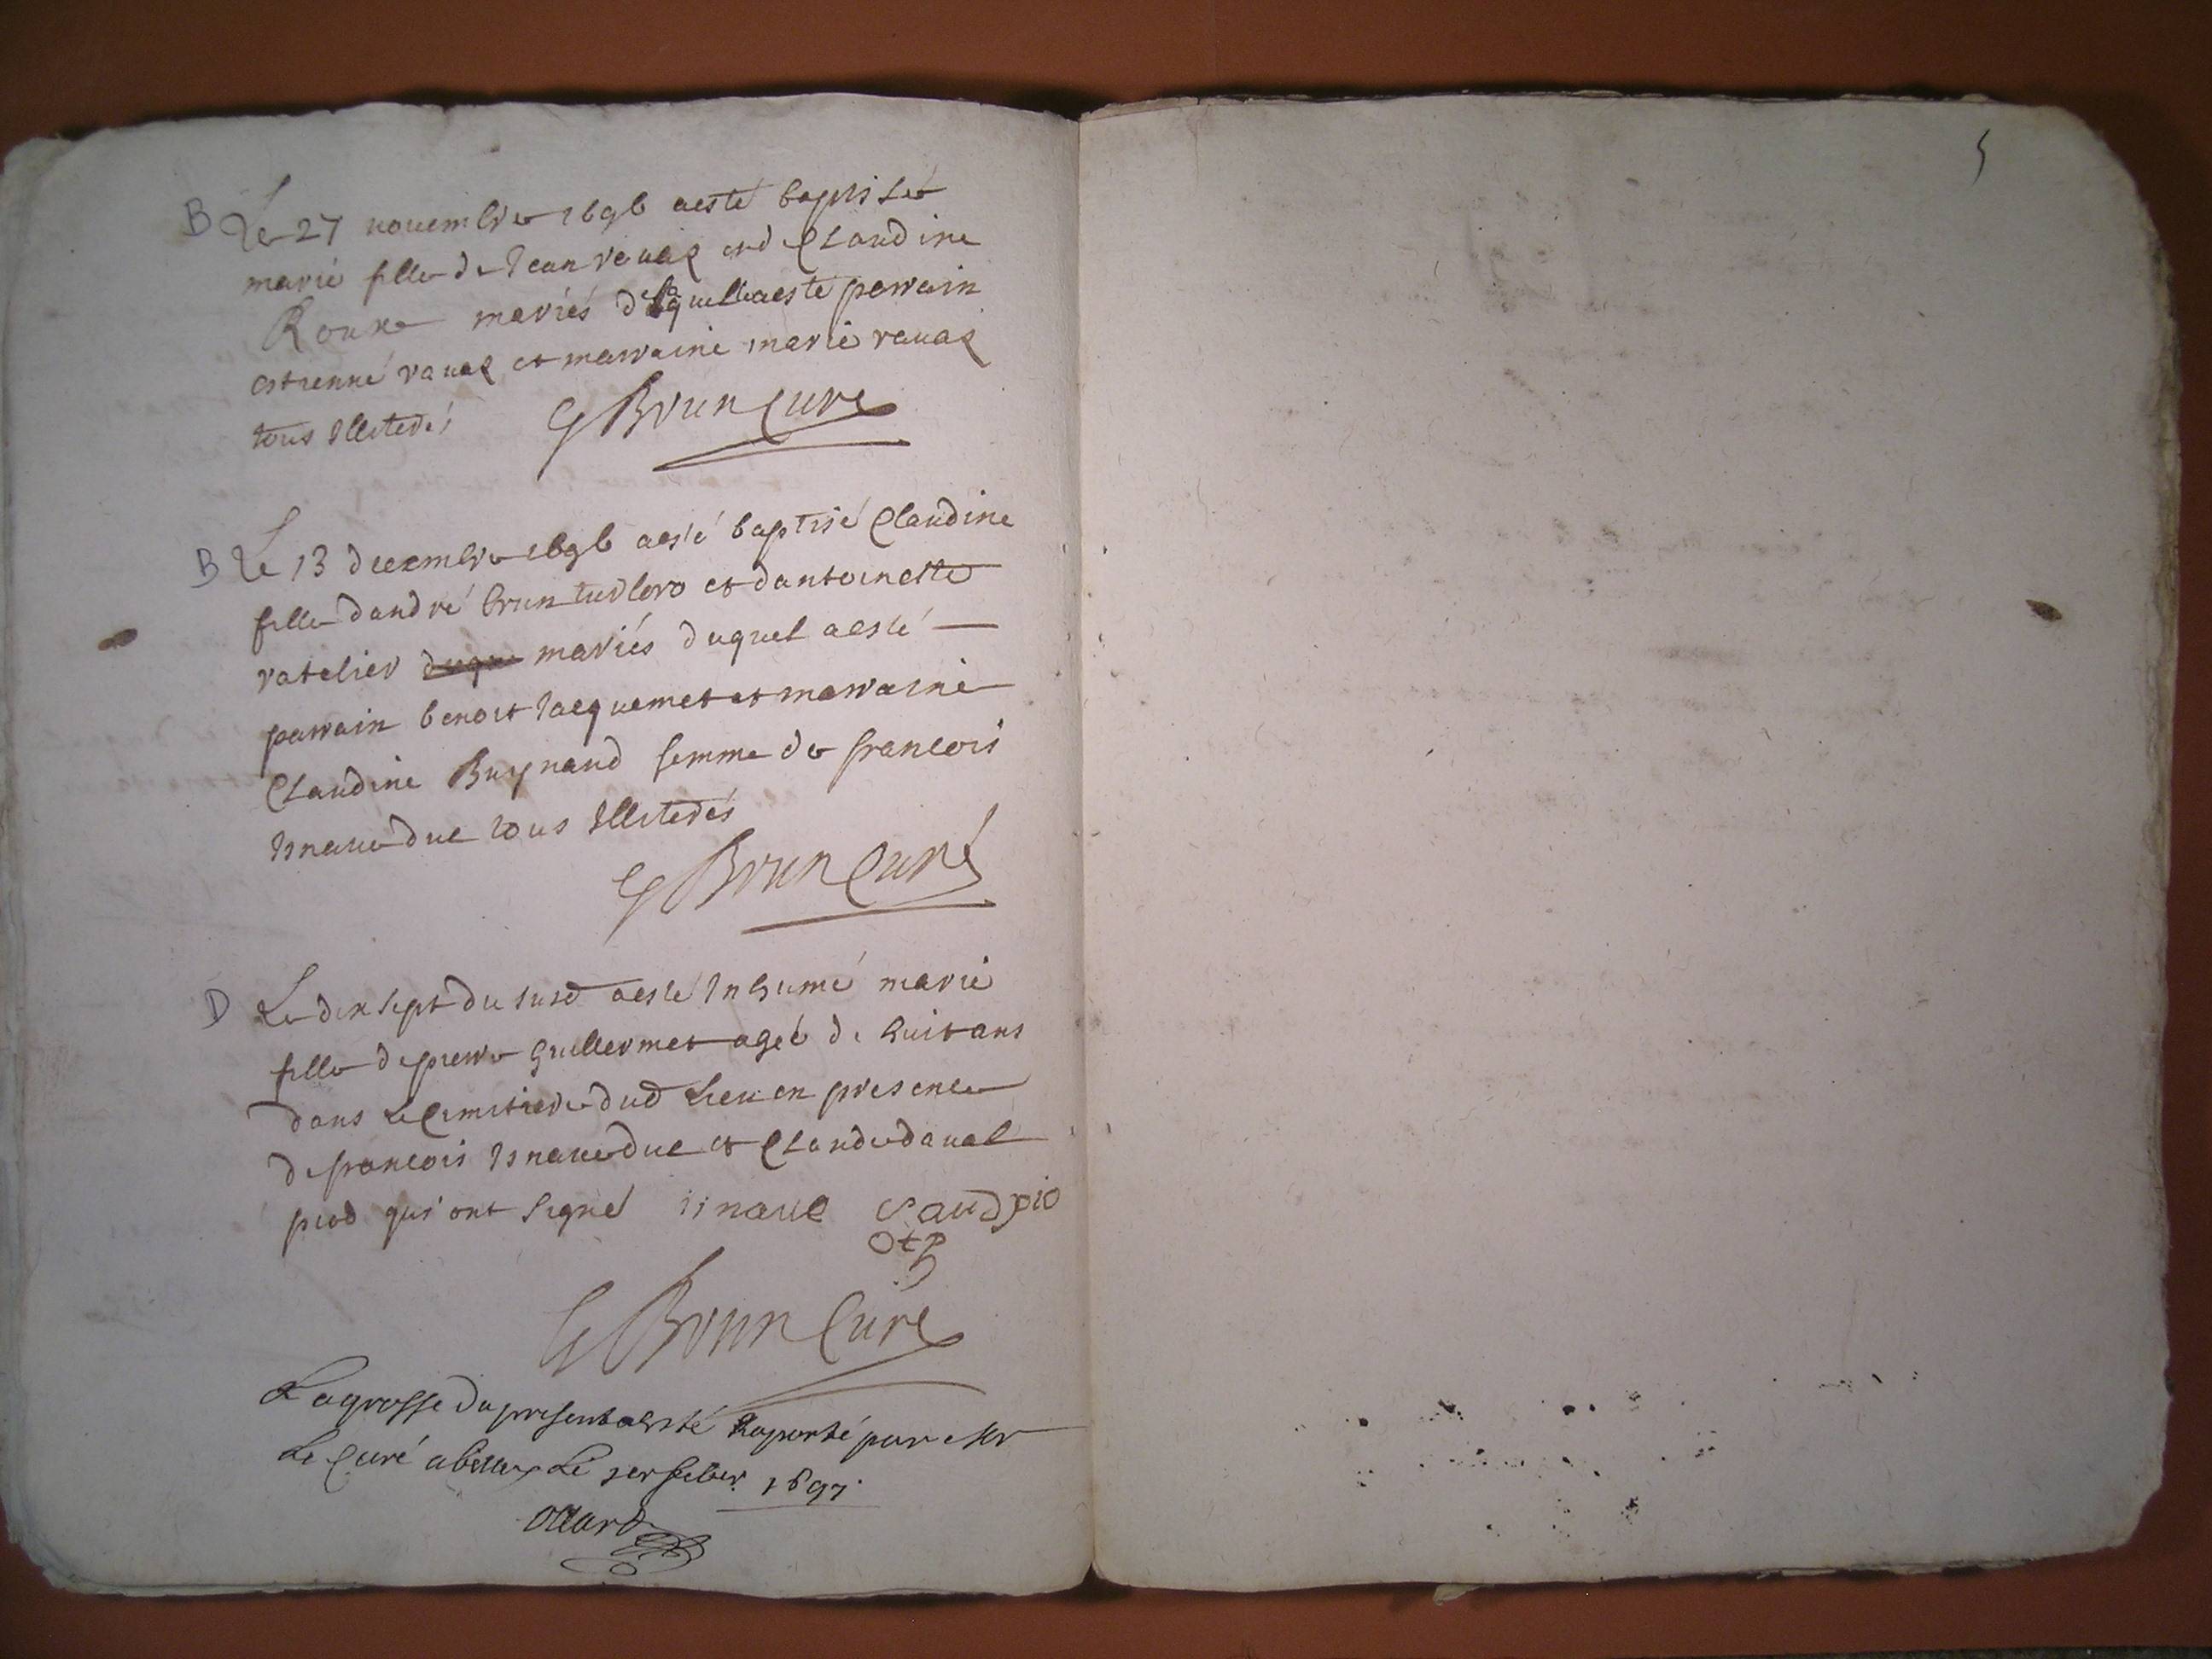 B Le 27 novembre 1696 a esté baptisée
marie fille de Jean revaz et de Claudine
Roux mariés de laquelle a este parrain
estienne ravaz et marraine marie ravaz
tous Illiterés G Brun Curé
B Le 13 decembre 1696 a esté baptisé Claudine
fille d'andré brun et d'antoinette
ratelier mariés duquel a esté
parrain benoit Jacquemet et marraine
Claudine Buynaud femme de francois
tous Illiterés
G Brun Curé
D Le dix sept du susd a esté Inhumé marie
fille de pierre Guillermet agée de huit ans
dans le Cimitiere dud Lieu en presence
de francois et Claude
piod qui ont signé
G Brun Curé
La grosse du present a esté Raporté par Mr
Le Curé Le 1er feber 1697
5